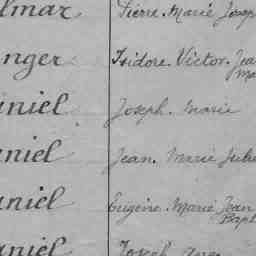 lmar Pierre. Marie Joseph
nger Isidore. Victor. Jean
Ma
niel Joseph. Marie
niel Jean. Marie Julie
niel Eugène. Marie Jean
Bapt
niel Joseph Ange